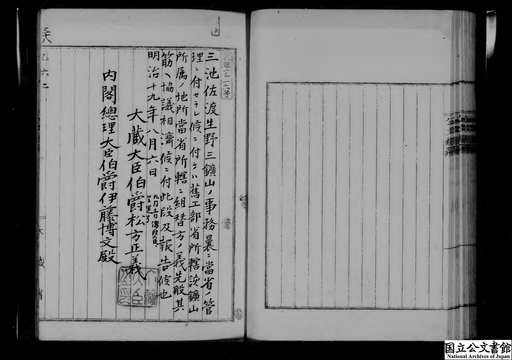 三池佐渡生野三鑛山ノ事務曩ニ當省ノ管
理ニ付セラレ候ニ付テハ舊工部省所轄該鑛山
所属ノ地所當省所轄ニ組替方ノ義先般其
筋ヘ協議相濟候ニ付此段及報告候也
明治十九年八月六日
大蔵大臣伯爵松方正義
内閣總理大臣伯爵伊藤博文殿
国立公文書館
National Archives of Japan